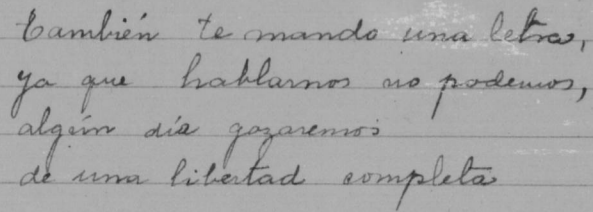 también te mando una letra,
ya que hablarnos no podemos,
algún día gozaremos
de una libertad completa